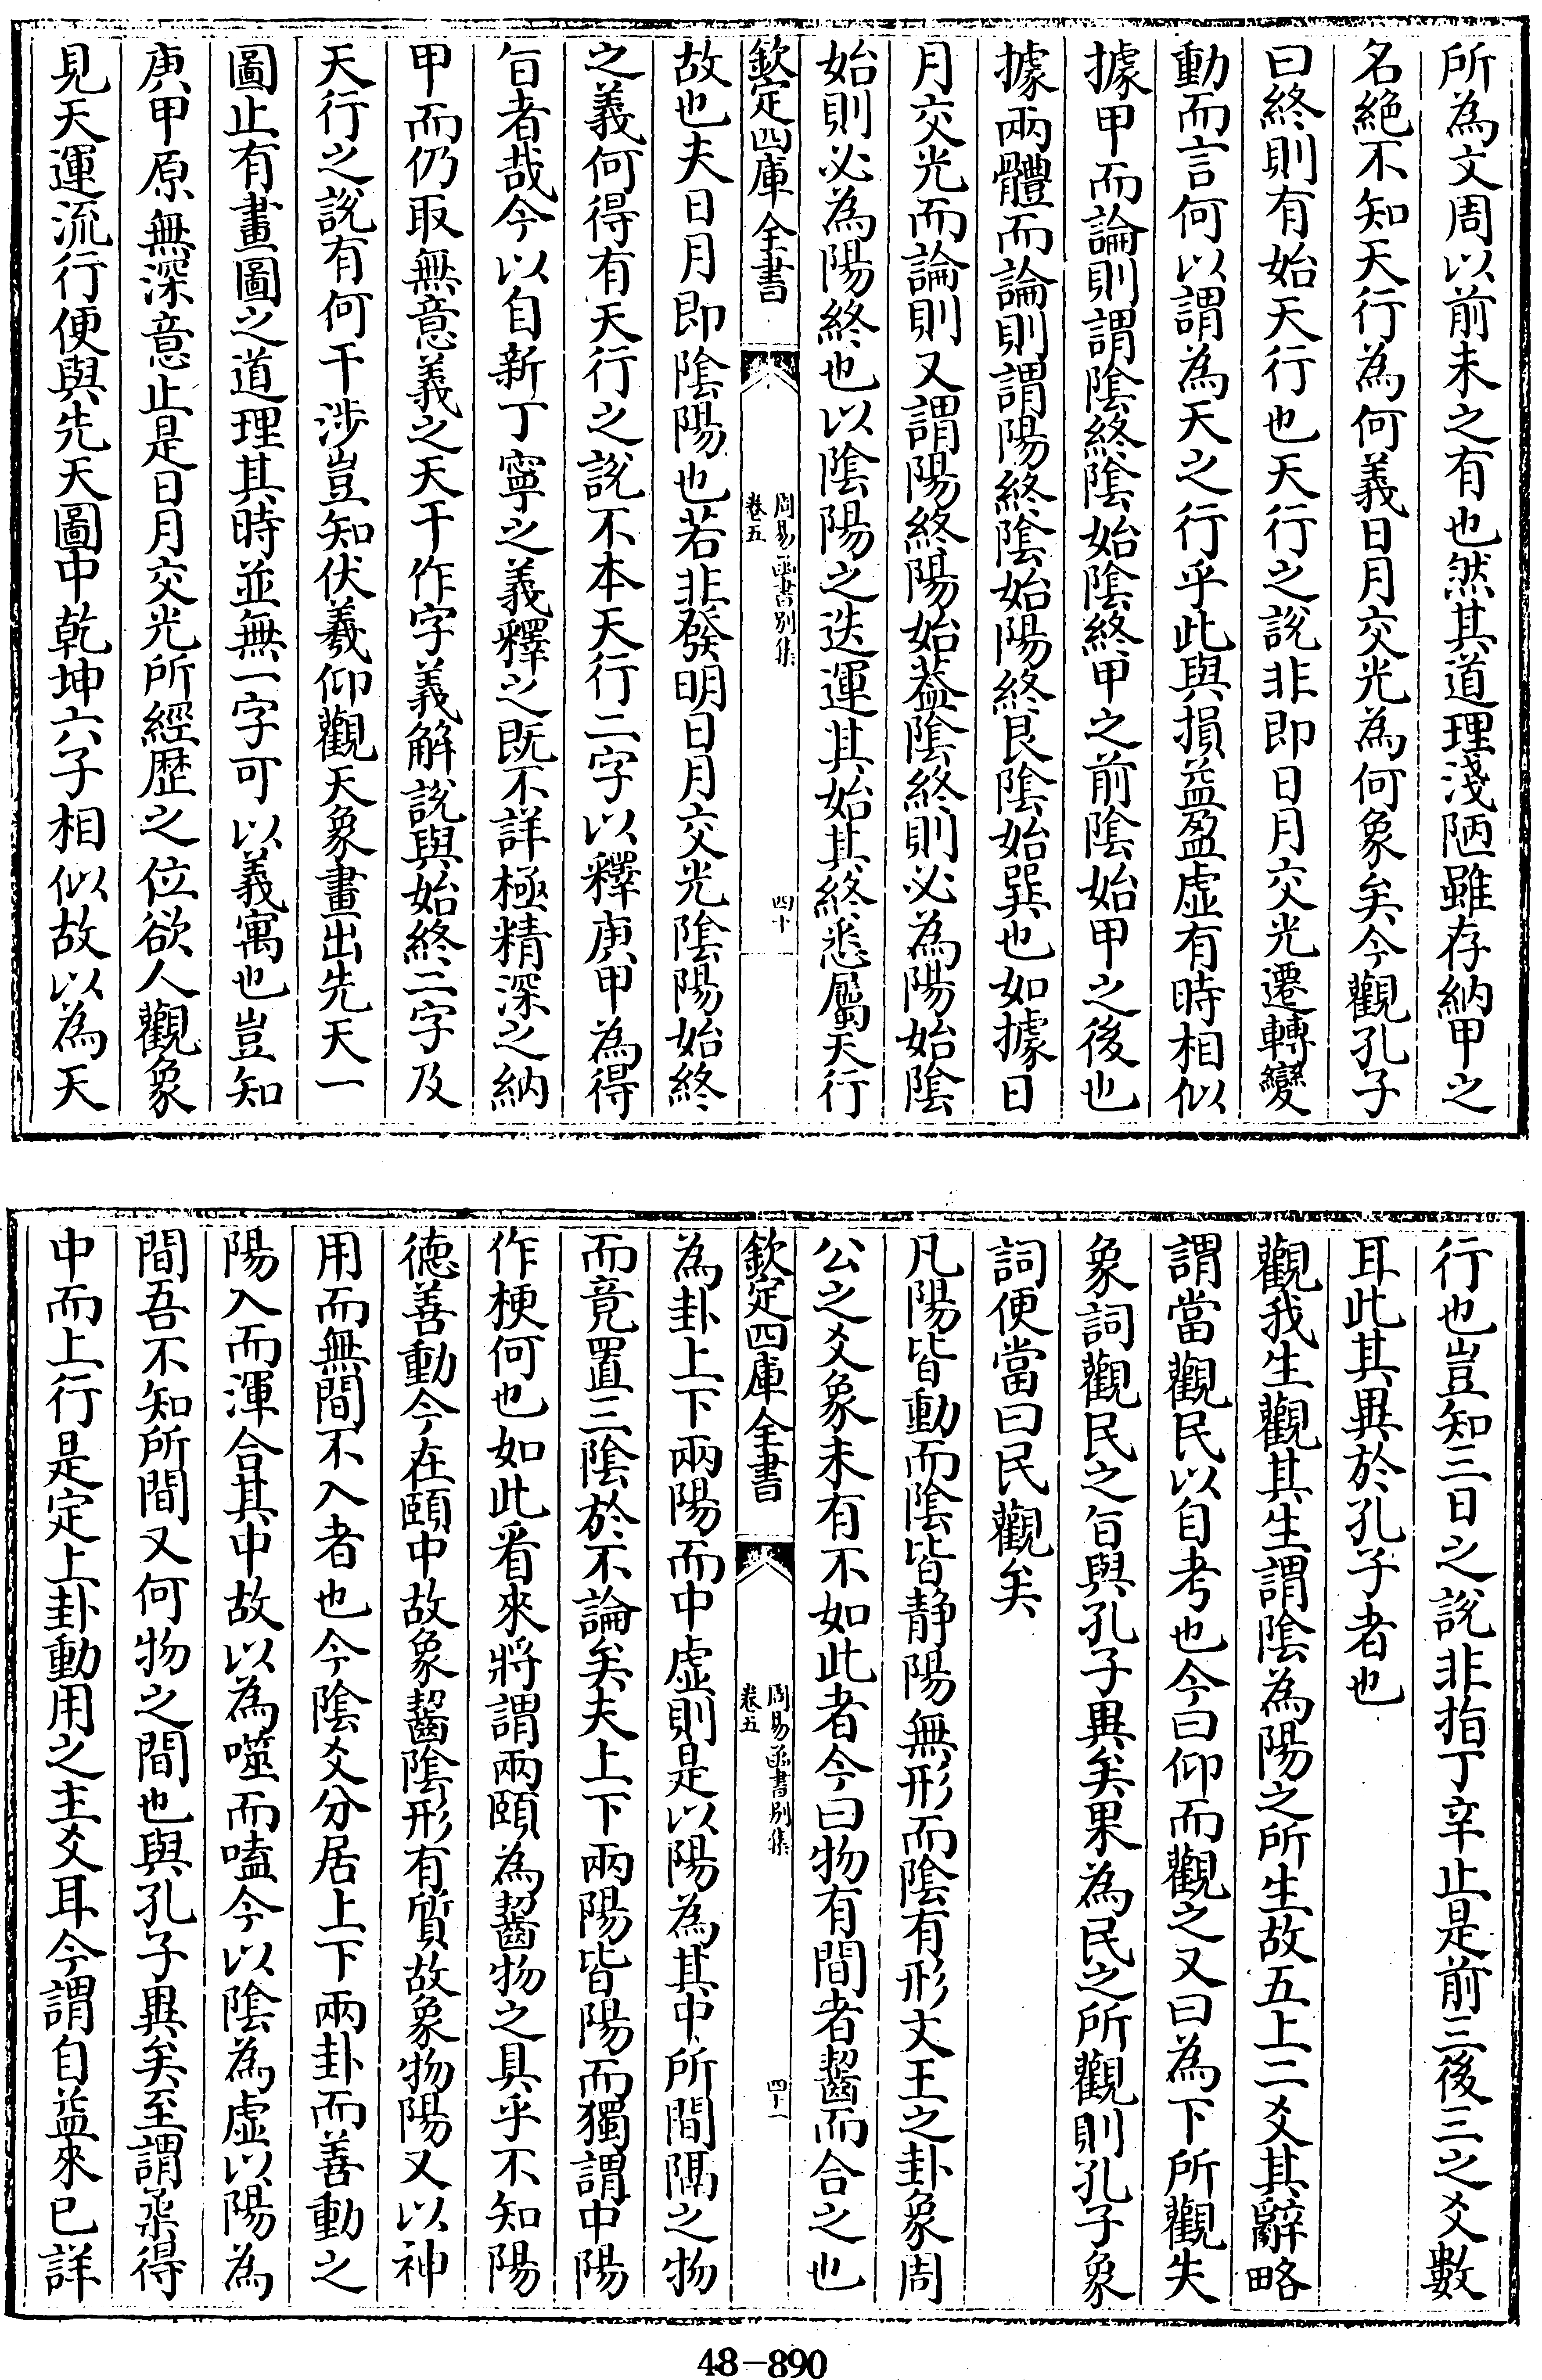 所為文周以前未之有也然其道理淺陋雖存納甲之
名絶不知天行為何義日月交光為何象矣今觀孔子
曰終則有始天行也天行之說非即日月交光遷轉變
動而言何以謂為天之行乎此與損益盈虛有時相似
據甲而論則謂陰終陰始陰終甲之前陰始甲之後也
據兩體而論則謂陽終陰始陽終艮陰始巽也如據日
月交光而論則又謂陽終陽始葢陰終則必為陽始陰
始則必為陽終也以陰陽之迭運其始其終悉屬天行
欽定四庫全書
周易函書別集
卷五
四十
故也夫日月即陰陽也若非發明日月交光陰陽始終
之義何得有天行之說不本天行二字以釋庚甲為得
㫖者哉今以自新丁寧之義釋之既不詳極精深之納
甲而仍取無意義之天干作字義解說與始終二字及
天行之說有何干涉豈知伏羲仰觀天象畫出先天一
圖止有畫圖之道理其時並無一字可以義寓也豈知
庚甲原無深意止是日月交光所經歴之位欲人觀象
見天運流行便與先天圖中乾坤六子相似故以為天
行也豈知三日之說非指丁辛止是前三後三之爻數
耳此其異於孔子者也
觀我生觀其生謂陰為陽之所生故五上二爻其辭略
謂當觀民以自考也今曰仰而觀之又曰為下所觀失
象詞觀民之㫖與孔子異矣果為民之所觀則孔子象
詞便當曰民觀矣
凡陽皆動而陰皆静陽無形而陰有形文王之卦象周
公之爻象未有不如此者今曰物有間者齧而合之也
欽定四庫全書
周易函書別集
卷五
四十一
為卦上下兩陽而中虛則是以陽為其中所間隔之物
而竟置三陰於不論矣夫上下兩陽皆陽而獨謂中陽
作梗何也如此看來將謂兩頤為齧物之具乎不知陽
德善動今在頤中故象齧陰形有質故象物陽又以神
用而無間不入者也今陰爻分居上下兩卦而善動之
陽入而渾合其中故以為噬而嗑今以陰為虛以陽為
間吾不知所間又何物之間也與孔子異矣至謂柔得
中而上行是定上卦動用之主爻耳今謂自益來已詳
48-890